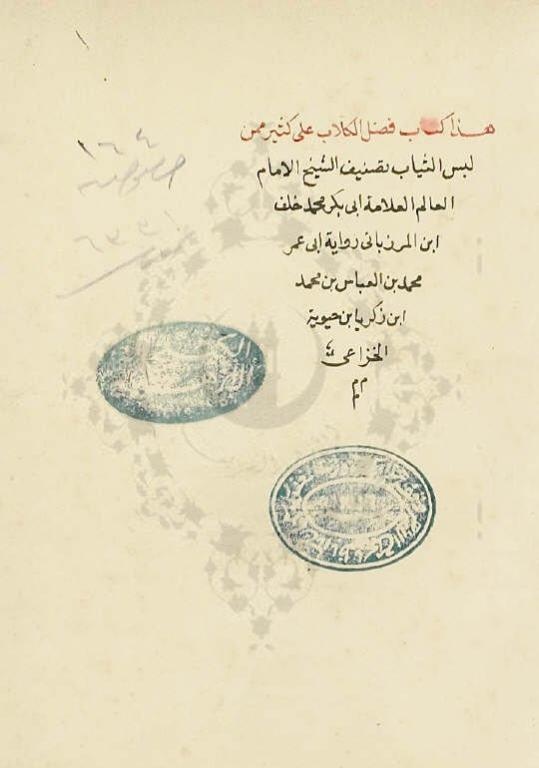 هذا كتاب فضل الكلاب على كثير ممن
لبس الثياب تصنيف الشيخ الامام
العالم العلامة ابى بكر محمد خلف
ابن المرزبانى رواية ابى عمر
محمد بن العباس بن محمد
ابن زكريا بن حيوية
الخزاعى
م م
م
١٦٤
٦٣٣١